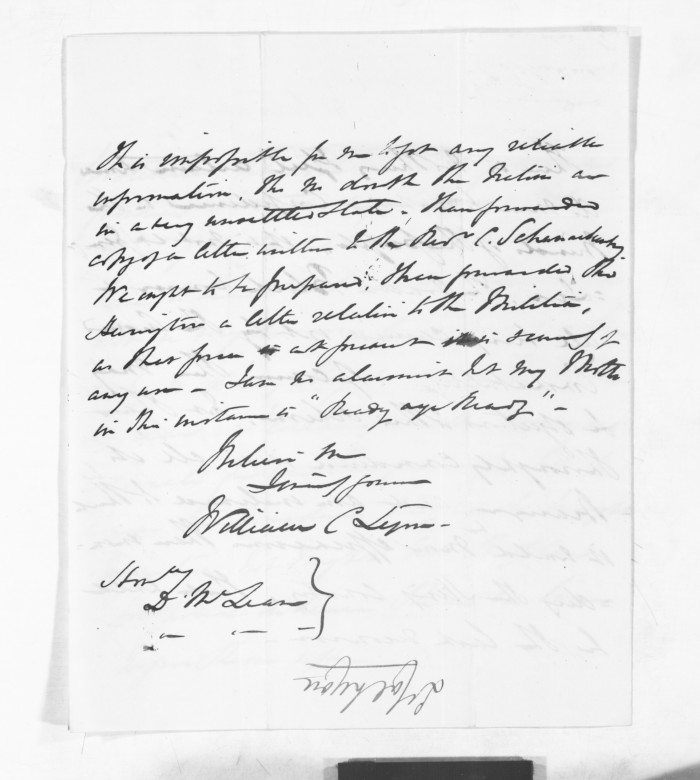 It is impossible for me to get any reliable
information. There is no doubt the Natives are
in a very unsettled State, I have forwarded
copy of a letter written to the Revd C. Schnackenberg
We ought to be prepared. I have forwarded
Harington a letter relative to the Militia,
as that force is at present scarcely of
any use – I am no alarmist but my Motto
in this instance is "Ready aye Ready" –
Believe me
Yours
William C Lyon –
Honble
D. McLean